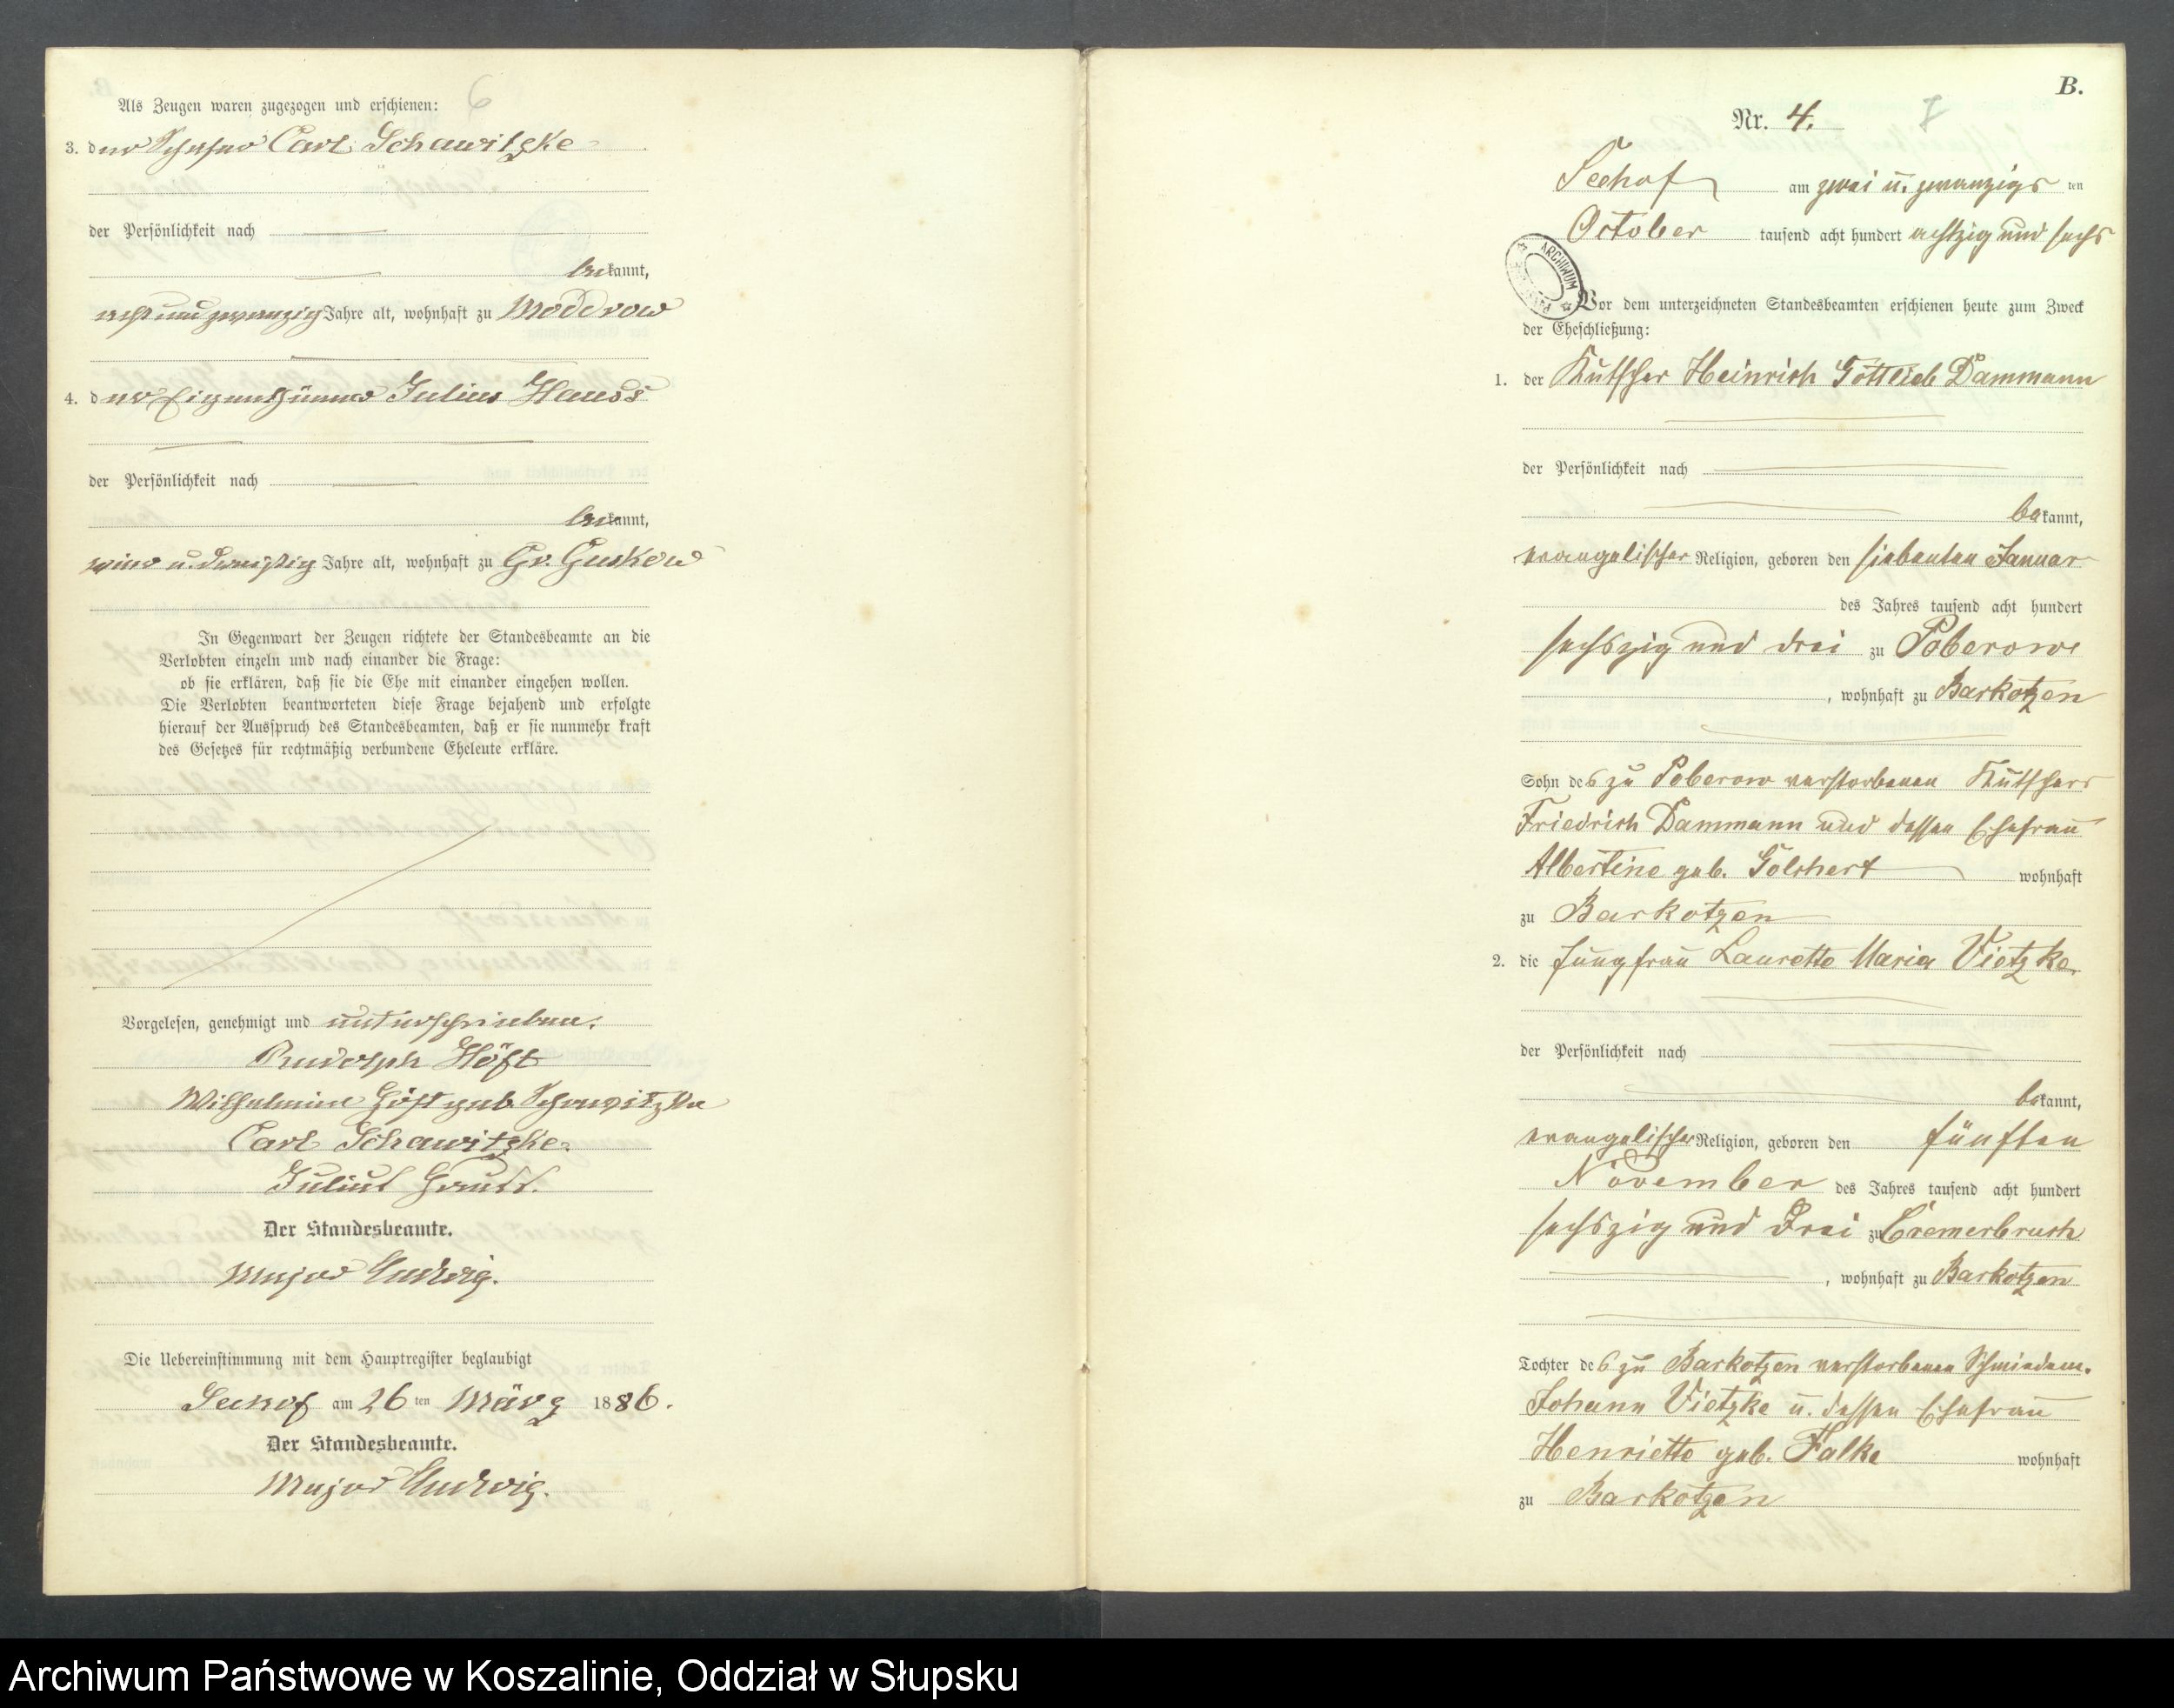 6
Als Zeugen waren zugezogen und erschienen:
3. der Schäfer Carl Schawitzke
der Persönlichkeit nach
bekannt,
acht und zwanzig Jahre alt, wohnhaft zu Moddrow
4. der Eigenthümer Julius
der Persönlichkeit nach
bekannt,
u. dreißig Jahre alt, wohnhaft zu Gr. Guskow
In Gegenwart der Zeugen richtete der Standesbeamte an die
Verlobten einzeln und nach einander die Frage:
ob sie erklären, daß sie die Ehe mit einander eingehen wollen.
Die Verlobten beantworteten diese Frage bejahend und erfolgte
hierauf der Ausspruch des Standesbeamten, daß er sie nunmehr kraft
des Gesetzes für rechtmäßig verbundene Eheleute erkläre.
Vorgelesen, genehmigt und unterschrieben.
Rudolph Höft
Wilhelmine Höft geb. Schawitzke
Carl Schawitzke.
Julius
Der Standesbeamte.
Major Ludwig.
Die Uebereinstimmung mit dem Hauptregister beglaubigt
Seehof am 26 ten März 1886.
Der Standesbeamte.
Major Ludwig.
B.
Nr. 4. 7
Seehof am zwei u. zwanzigs ten
October tausend acht hundert achtzig und sechs
ARCHIWUM
Vor dem unterzeichneten Standesbeamten erschienen heute zum Zweck
der Eheschließung:
1. der Kutscher Heinrich Gottlieb Dammann
der Persönlichkeit nach
bekannt,
evangelischer Religion, geboren den siebenten Januar
des Jahres tausend acht hundert
sechszig und drei zu Poberowe
, wohnhaft zu Barkotzen
Sohn des zu Poberow verstorbenen Kutschers
Friedrich Dammann und dessen Ehefrau
Albertine geb. Golchert wohnhaft
zu Barkotzen
2. die Jungfrau Laurette Maria Vietzke.
der Persönlichkeit nach
bekannt,
evangelischer Religion, geboren den fünften
November des Jahres tausend acht hundert
sechszig und drei zu Cremerbruch
, wohnhaft zu Barkotzen
Tochter des zu Barkotzen verstorbenen Schmiedem.
Johann Vietzke u. dessen Ehefrau
Henriette geb. Falke wohnhaft
zu Barkotzen
Archiwum Państwowe w Koszalinie, Oddział w Słupsku